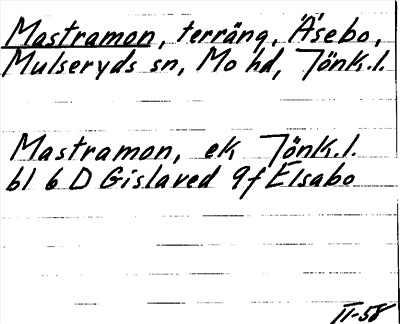 Mastramon, terräng, Åsebo,
Mulseryds sn, Mo hd, Jönk.l.
Mastramon, ek Jönk.l.
bl 6 D Gislaved 9f Elsabo
II-58